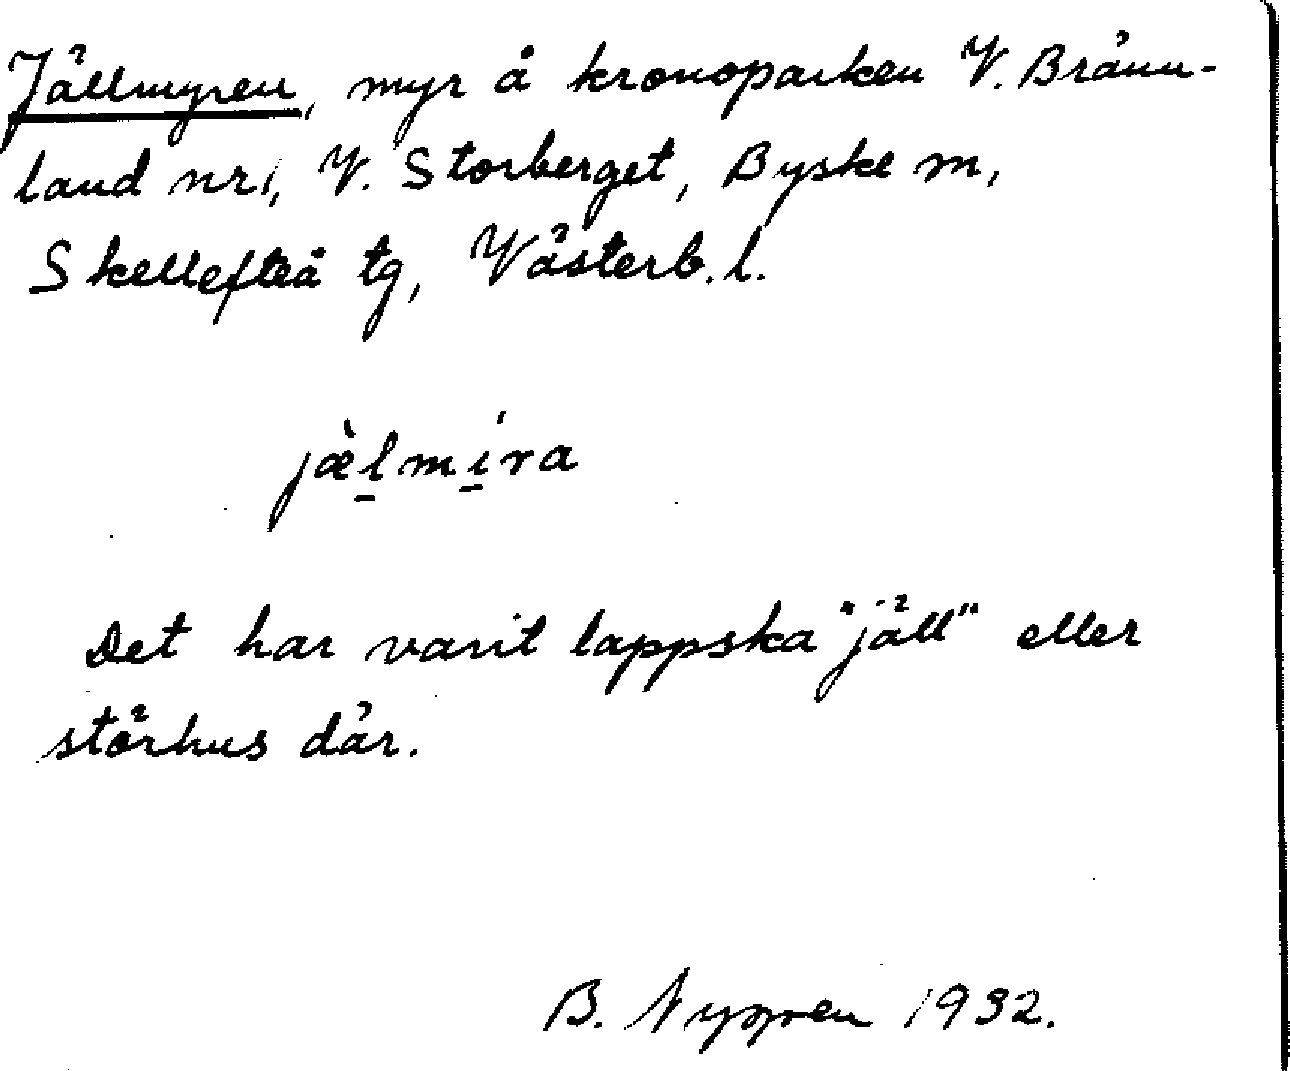 Jällmyren, myr å kronoparken V. Bränn-
land nr 1, V. Storberget, Byske m,
Skellefteå tg, Västerb. l.
jæ̀l̠mí̠ra
Det har varit lappska "jäll" eller
störhus där.
B. Nygren 1932.